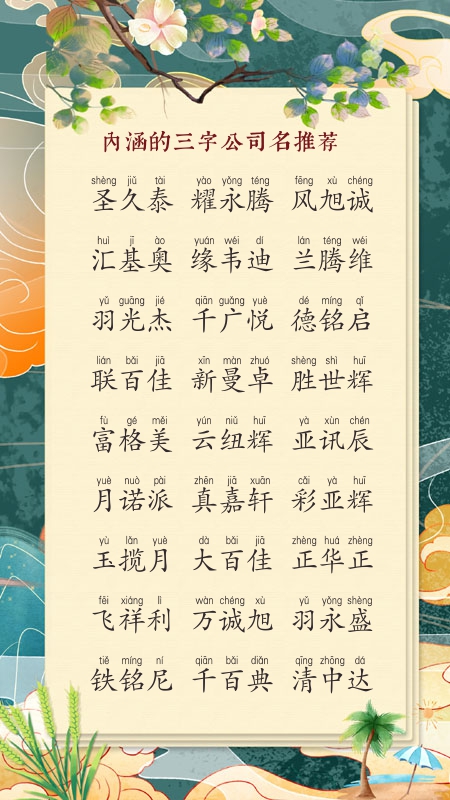 内涵的三字公司名推荐
shèng jiǔ tài yào yǒng téng fēng xù chéng
圣久泰 耀永腾 风旭诚
huì jī ào yuán wéi dí lán téng wéi
汇基奥 缘韦迪 兰腾维
yǔ guāng jié qiān guǎng yuè dé míng qǐ
羽光杰 千广悦 德铭启
lián bǎi jiā xīn màn zhuó shèng shì huī
联百佳 新曼卓 胜世辉
fù gé měi yún niǔ huī yà xùn chén
富格美 云纽辉 亚讯辰
yuè nuò pài zhēn jiā xuān cǎi yà huī
月诺派 真嘉轩 彩亚辉
yù lǎn yuè dà bǎi jiā zhèng huá zhèng
玉揽月 大百佳 正华正
fēi xiáng lì wàn chéng xù yǔ yǒng shèng
飞祥利 万诚旭 羽永盛
tiě míng ní qiān bǎi diǎn qīng zhōng dá
铁铭尼 千百典 清中达